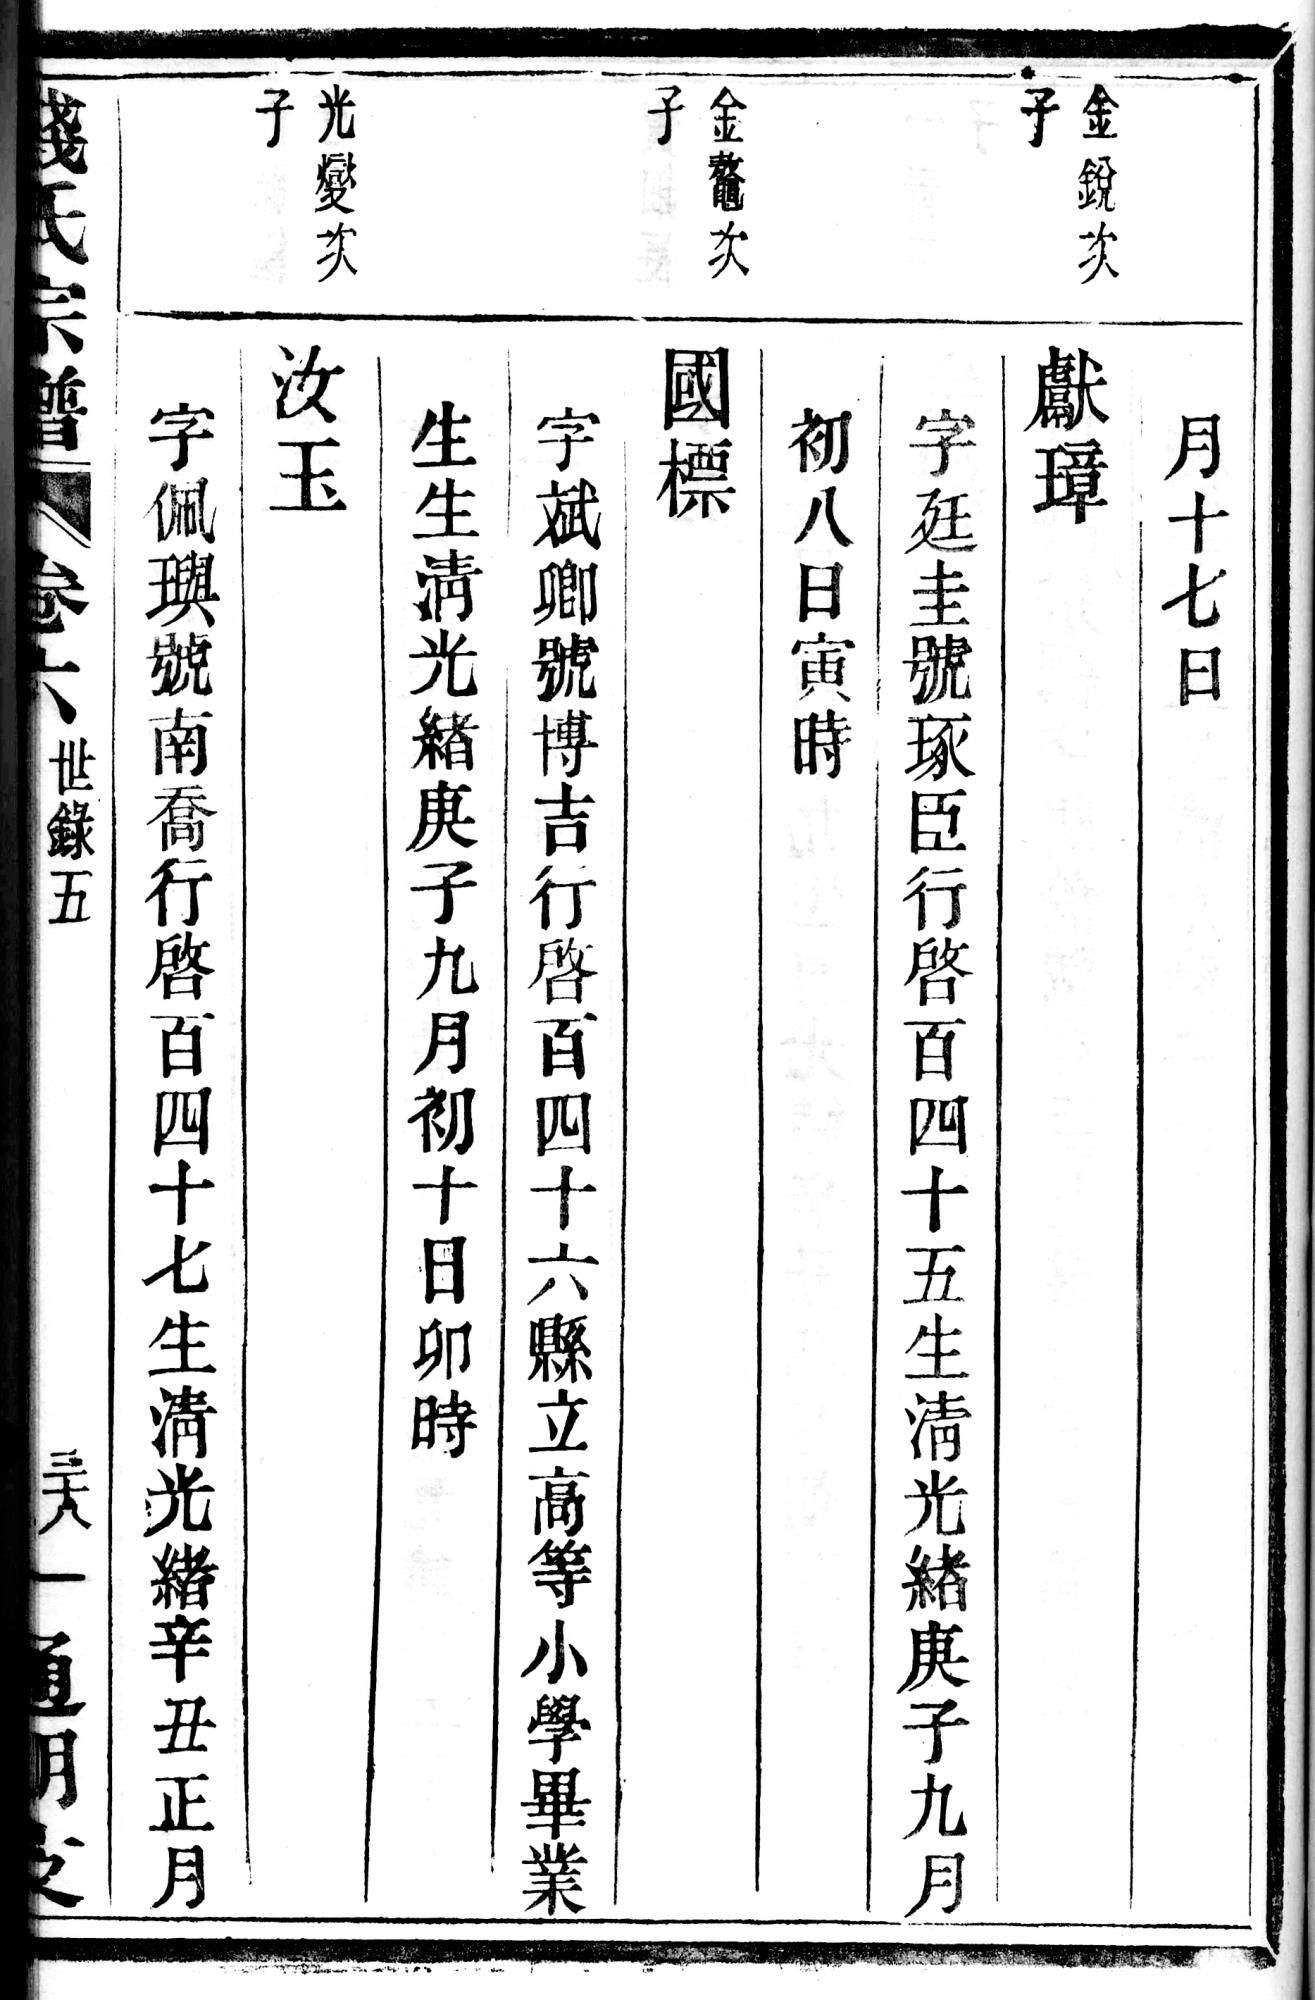 月十七日
金銳次
子
獻璋
字廷圭號琢臣行啓百四十五生清光緒庚子九月
初八日寅時
金鼇次
子
國標
字斌卿號博吉行啓百四十六縣立高等小學畢業
生生清光緒庚子九月初十日卯時
光燮次
子
汝玉
字佩璵號南喬行啓百四十七生清光緒辛丑正月
錢氏宗譜 卷六 世錄五 三十八 通明支